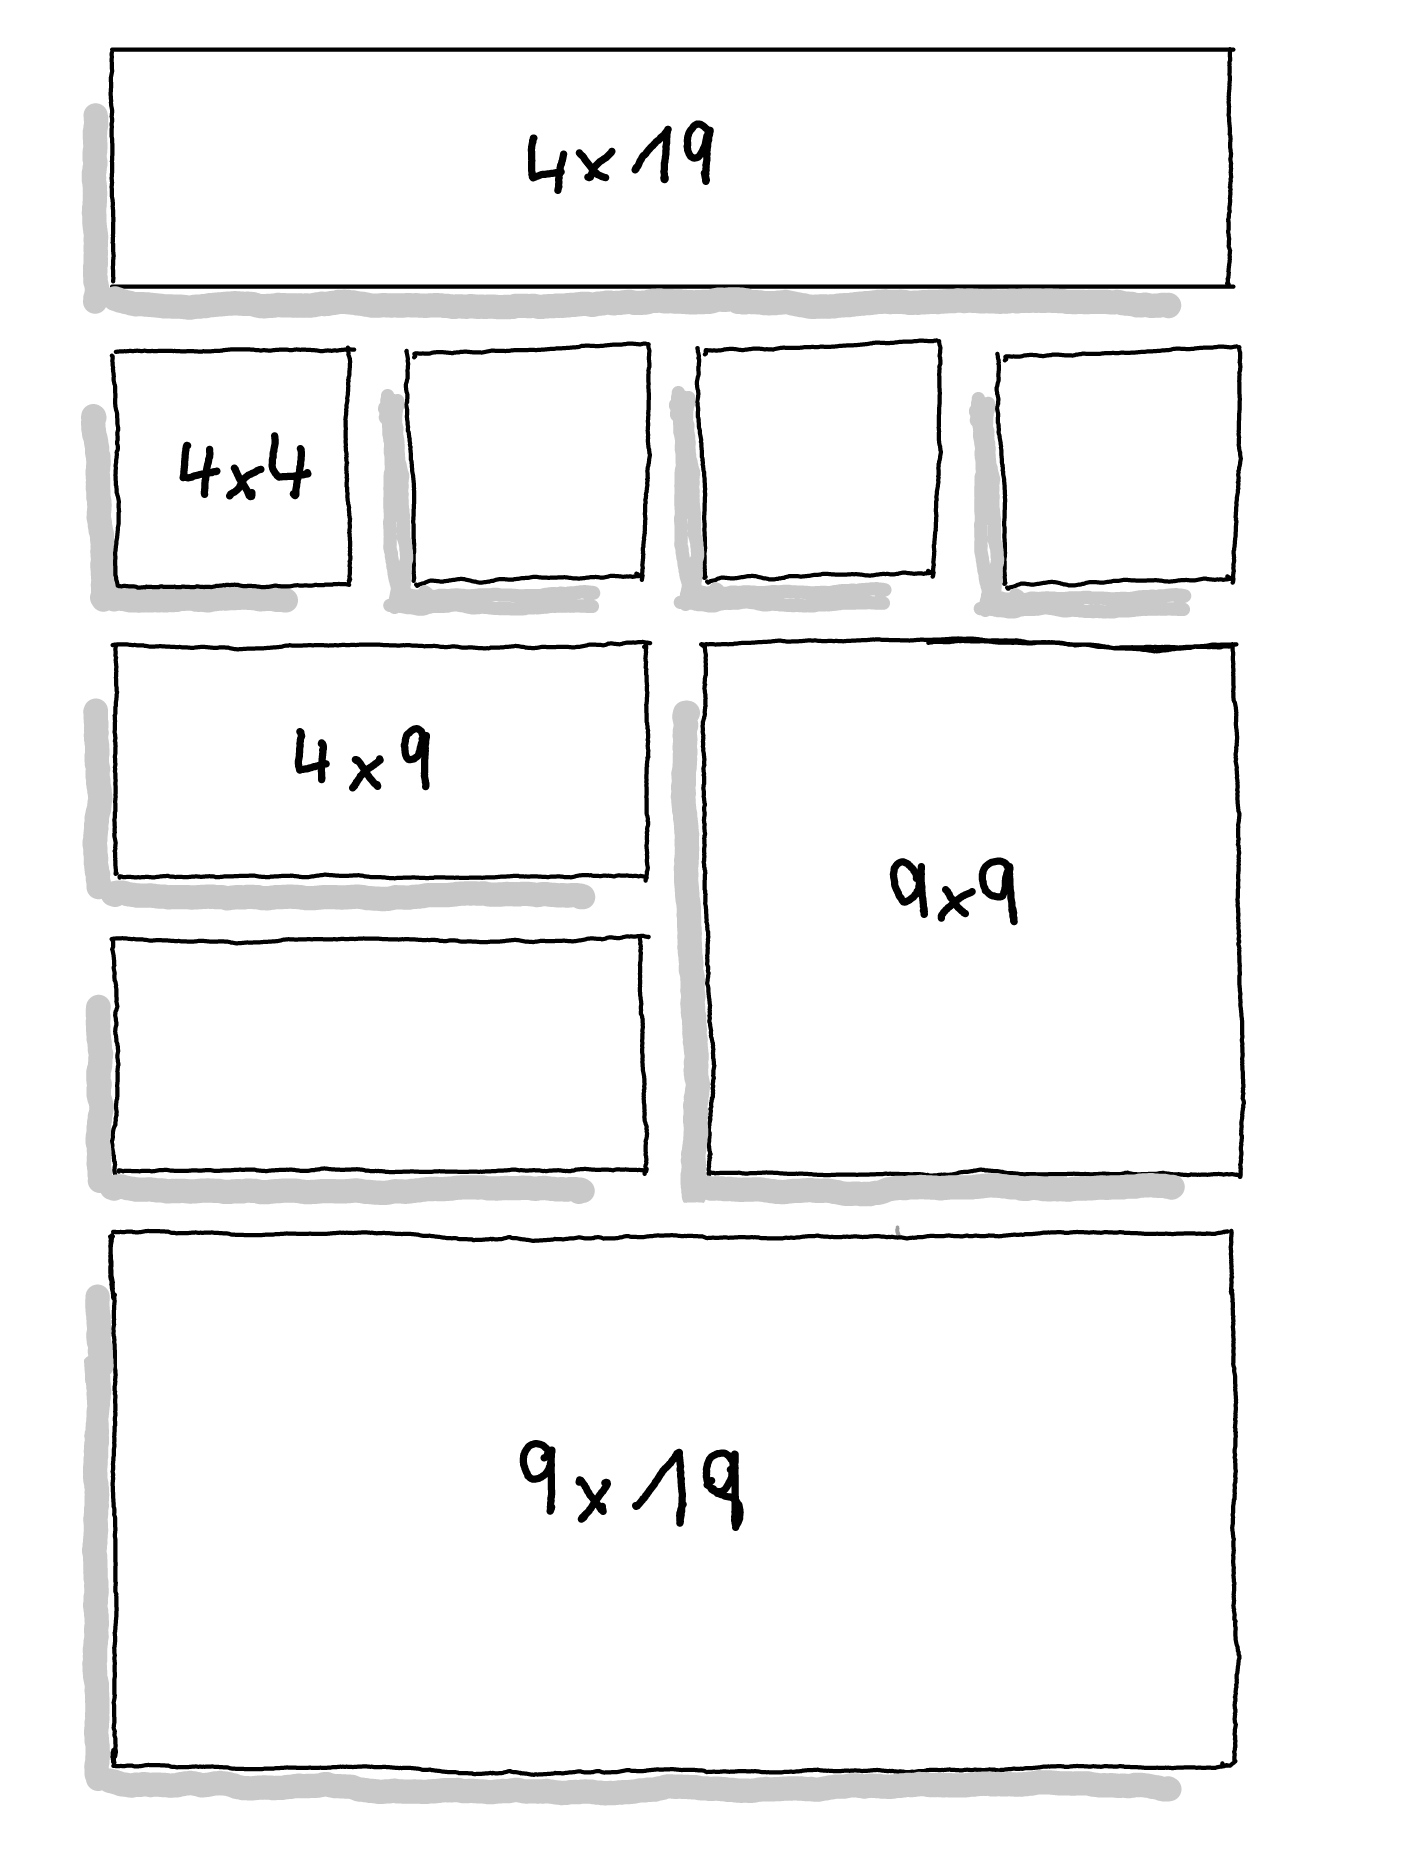 4x19
4x4
4x9
9x9
9x19